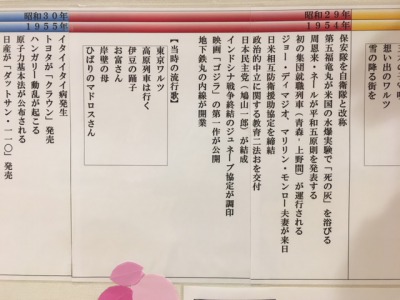 王さん
想い出のワルツ
雪の降る街を
昭和29年
1954年
保安隊を自衛隊と改称
第五福竜丸が米国の水爆実験で「死の灰」を浴びる
周恩来・ネールが平和五原則を発表する
初の集団就職列車（青森-上野間）が運行される
ジョー・ディマジオ、マリリン・モンロー夫妻が来日
日米相互防衛援助協定を締結
政治的中立に関する教育二法おを交付
日本民主党（鳩山一郎）が結成
インドシナ戦争終結のジュネーブ協定が調印
映画「ゴジラ」の第一作が公開
地下鉄丸の内線が開業
【当時の流行歌】
東京ワルツ
高原列車は行く
伊豆の踊子
お富さん
岸壁の母
ひばりのマドロスさん
昭和30年
1955年
イタイイタイ病発生
トヨタが「クラウン」発売
ハンガリー動乱が起こる
原子力基本法が公布される
日産が「ダットサン・一一〇」発売